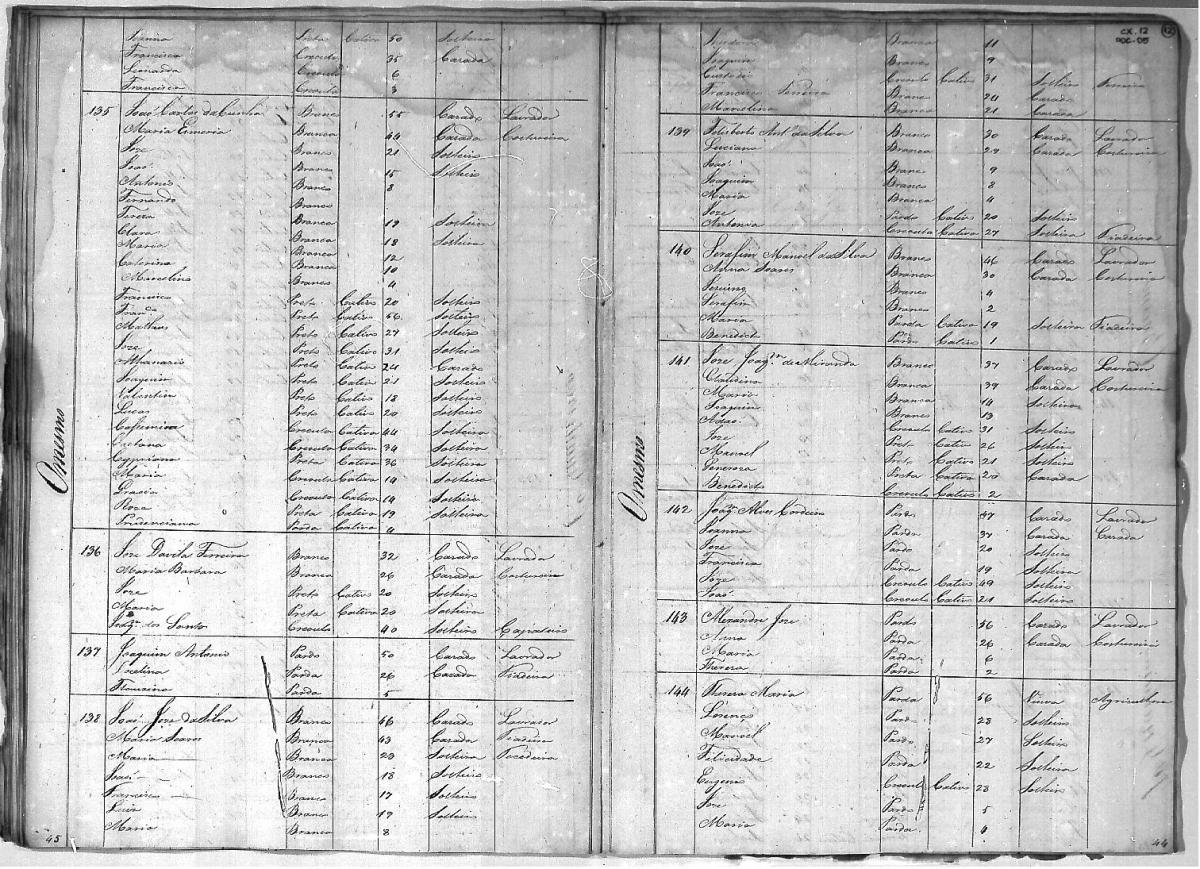 Joanna Preta Cativa 50 Solteira
Francisca Creoula 35 Casada
Leonarda Creoula 6
Francisca Creoula 3
135 João Carlos da Cunha Branco 55 Casado Lavrador
Maria Branca 44 Casada Costureira
Joze Branco 21 Solteiro
João Branco 15 Solteiro
Antonio Branco 8
Fernando Branco
Tereza Branca 19 Solteira
Clara Branca 18 Solteira
Maria Branca 12
Caterina Branca 10
Marcelino Branco 4
Francisco Preto Cativo 20 Solteiro
Preto Cativo 56 Solteiro
Matheus Preto Cativo 27 Solteiro
Joze Preto Cativo 31 Solteiro
Athanazio Preto Cativo 24 Casado
Joaquim Preto Cativo 21 Solteiro
Valentim Preto Cativo 18 Solteiro
Lucas Preto Cativo 20 Solteiro
Creoula Cativa 44 Solteira
Caetana Creoula Cativa 34 Solteira
Cypriana Preta Cativa 36 Solteira
Maria Creoula Cativa 19 Solteira
Gracia Creoula Cativa 14 Solteira
Roza Preta Cativa 19 Solteira
Prudenciana Parda Cativa 4
O mesmo
136 Joze Davila Branco 32 Casado Lavrador
Maria Barbara Branca 26 Casada Costureira
Joze Preto Cativo 20 Solteiro
Maria Preta Cativa 20 Solteira
dos Santo Creoulo 40 Solteiro
137 Joaquim Antonio Pardo 50 Casado Lavrador
Parda 26 Cazada Fiadeira
Flourina Parda 5
138 João Joze da Silva Branco 56 Casado Lavrador
Maria Soares Branca 43 Casada Fiadeira
Maria Branca 20 Solteira Tecedeira
João Branco 18 Solteiro
Francisco Branco 17 Solteiro
Luis Branco 17 Solteiro
Maria Branca 8
45
CX. 12
DOC-05
42
Branca 11
Joaquim Branco 9
Custodio Creoulo Cativo 31 Solteiro
Francisco Pereira Branco 24 Casado
Marcelina Branca 21 Casada
139 Feliberto Ant.º da Silva Branco 30 Casado Lavrador
Luciana Branca 29 Casada Costureira
João Branco 9
Joaquim Branco 8
Maria Branca 4
Joze Pardo Cativo 20 Solteiro
Antonia Creoula Cativa 27 Solteira Fiadeira
140 Serafim Manoel da Silva Branco 46 Casado Lavrador
Anna Soares Branca 30 Casada Costureira
Branco 4
Serafim Branco 2
Maria Parda Cativa 19 Solteira Fiadeira
Benedicto Pardo Cativo 1
141 Joze Joaq.m de Miranda Branco 37 Casado Lavrador
Branca 39 Casada Costureira
Maria Branca 14 Solteira
Joaquim Branco 13
Adão Creoulo Cativo 31 Solteiro
Joze Preto Cativo 26 Solteiro
Manoel Preto Cativo 21 Solteiro
Generoza Preta Cativa 20 Casada
Benedicto Creoulo Cativo 2
O mesmo
142 Joaq.m Alves Cordeiro Pardo 47 Casado Lavrador
Joanna Parda 37 Casada Casada
Joze Pardo 20 Solteiro
Francisca Parda 19 Solteira
Joze Creoulo Cativo 49 Solteiro
João Creoulo Cativo 21 Solteiro
143 Alexandre Joze Pardo 56 Casado Lavrador
Anna Parda 26 Casada Costureira
Maria Parda 6
Thereza Parda 2
144 Thereza Maria Parda 56 Viuva Agricultora
Lorenço Pardo 28 Solteiro
Manoel Pardo 27 Solteiro
Felicidade Parda 22 Solteira
Eugenio Creoulo Cativo 28 Solteiro
Joze Pardo 5
Maria Parda 4
44